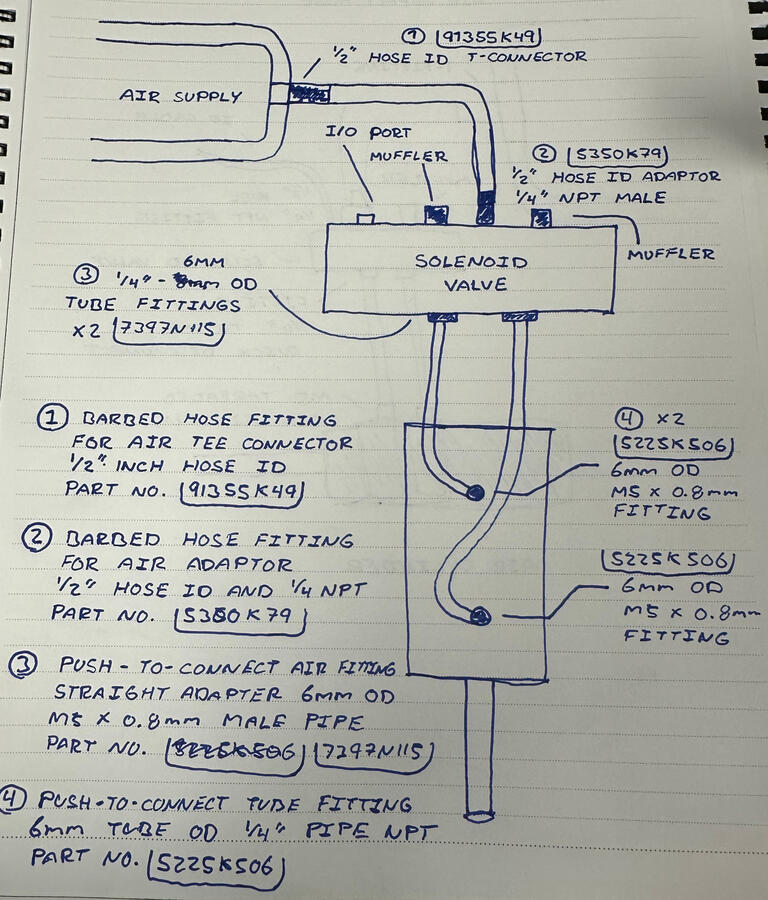 ① 91355K49
1/2" HOSE ID T-CONNECTOR
AIR SUPPLY
I/O PORT
MUFFLER
② 5350K79
1/2" HOSE ID ADAPTOR
1/4" NPT MALE
MUFFLER
SOLENOID
VALVE
6MM
③ 1/4" - 8mm OD
TUBE FITTINGS
x2 7397N115
① BARBED HOSE FITTING
FOR AIR TEE CONNECTOR
1/2" INCH HOSE ID
PART NO. 91355K49
② BARBED HOSE FITTING
FOR AIR ADAPTOR
1/2" HOSE ID AND 1/4 NPT
PART NO. 5350K79
③ PUSH-TO-CONNECT AIR FITTING
STRAIGHT ADAPTER 6mm OD
M5 x 0.8mm MALE PIPE
PART NO. 5225K506 7297N115
④ PUSH-TO-CONNECT TUBE FITTING
6mm TUBE OD 1/4" PIPE NPT
PART NO. 5225K506
④ x2
5225K506
6mm OD
M5 x 0.8mm
FITTING
5225K506
6mm OD
M5 x 0.8mm
FITTING